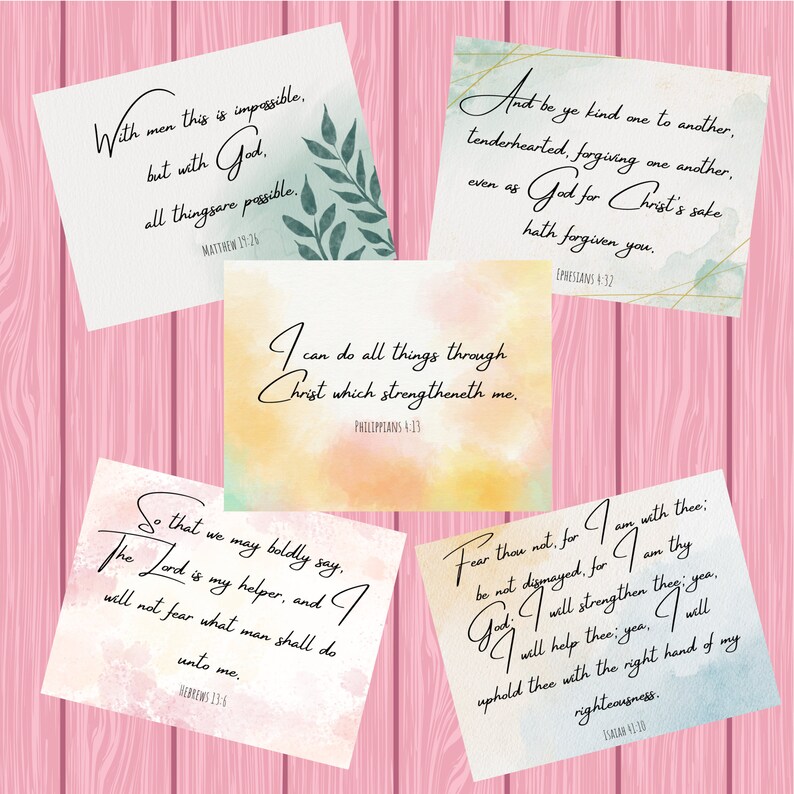 With men this is impossible,
but with God,
all thingsare possible.
Matthew 19:26
And be ye kind one to another,
tenderhearted, forgiving one another,
even as God for Christ's sake
hath forgiven you.
Ephesians 4:32
I can do all things through
Christ which strengtheneth me.
Philippians 4:13
So that we may boldly say,
The Lord is my helper, and I
will not fear what man shall do
unto me.
Hebrews 13:6
Fear thou not, for I am with thee;
be not dismayed, for I am thy
God: I will strengthen thee; yea,
I will help thee; yea, I will
uphold thee with the right hand of my
righteousness.
Isaiah 41:10